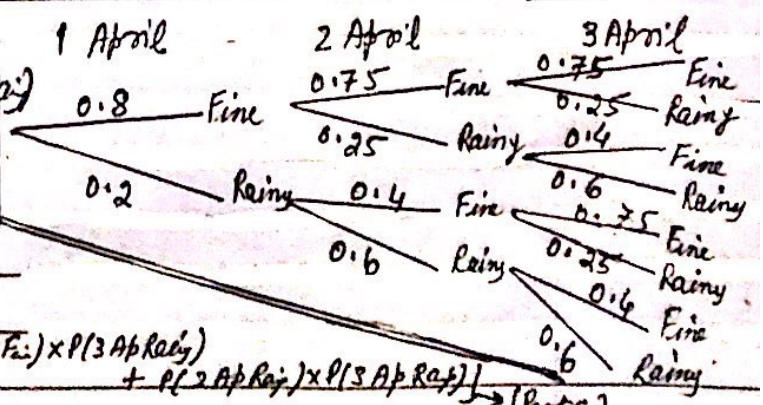 1 April 2 April 3 April
0.8 Fine 0.75 Fine 0.75 Fine
0.25 Rainy
0.25 Rainy 0.4 Fine
0.6 Rainy
0.2 Rainy 0.4 Fine 0.75 Fine
0.25 Rainy
0.6 Rainy 0.4 Fine
0.6 Rainy
× P(3 Ap Rainy)
+ P(2 Ap Rai) × P(3 Ap